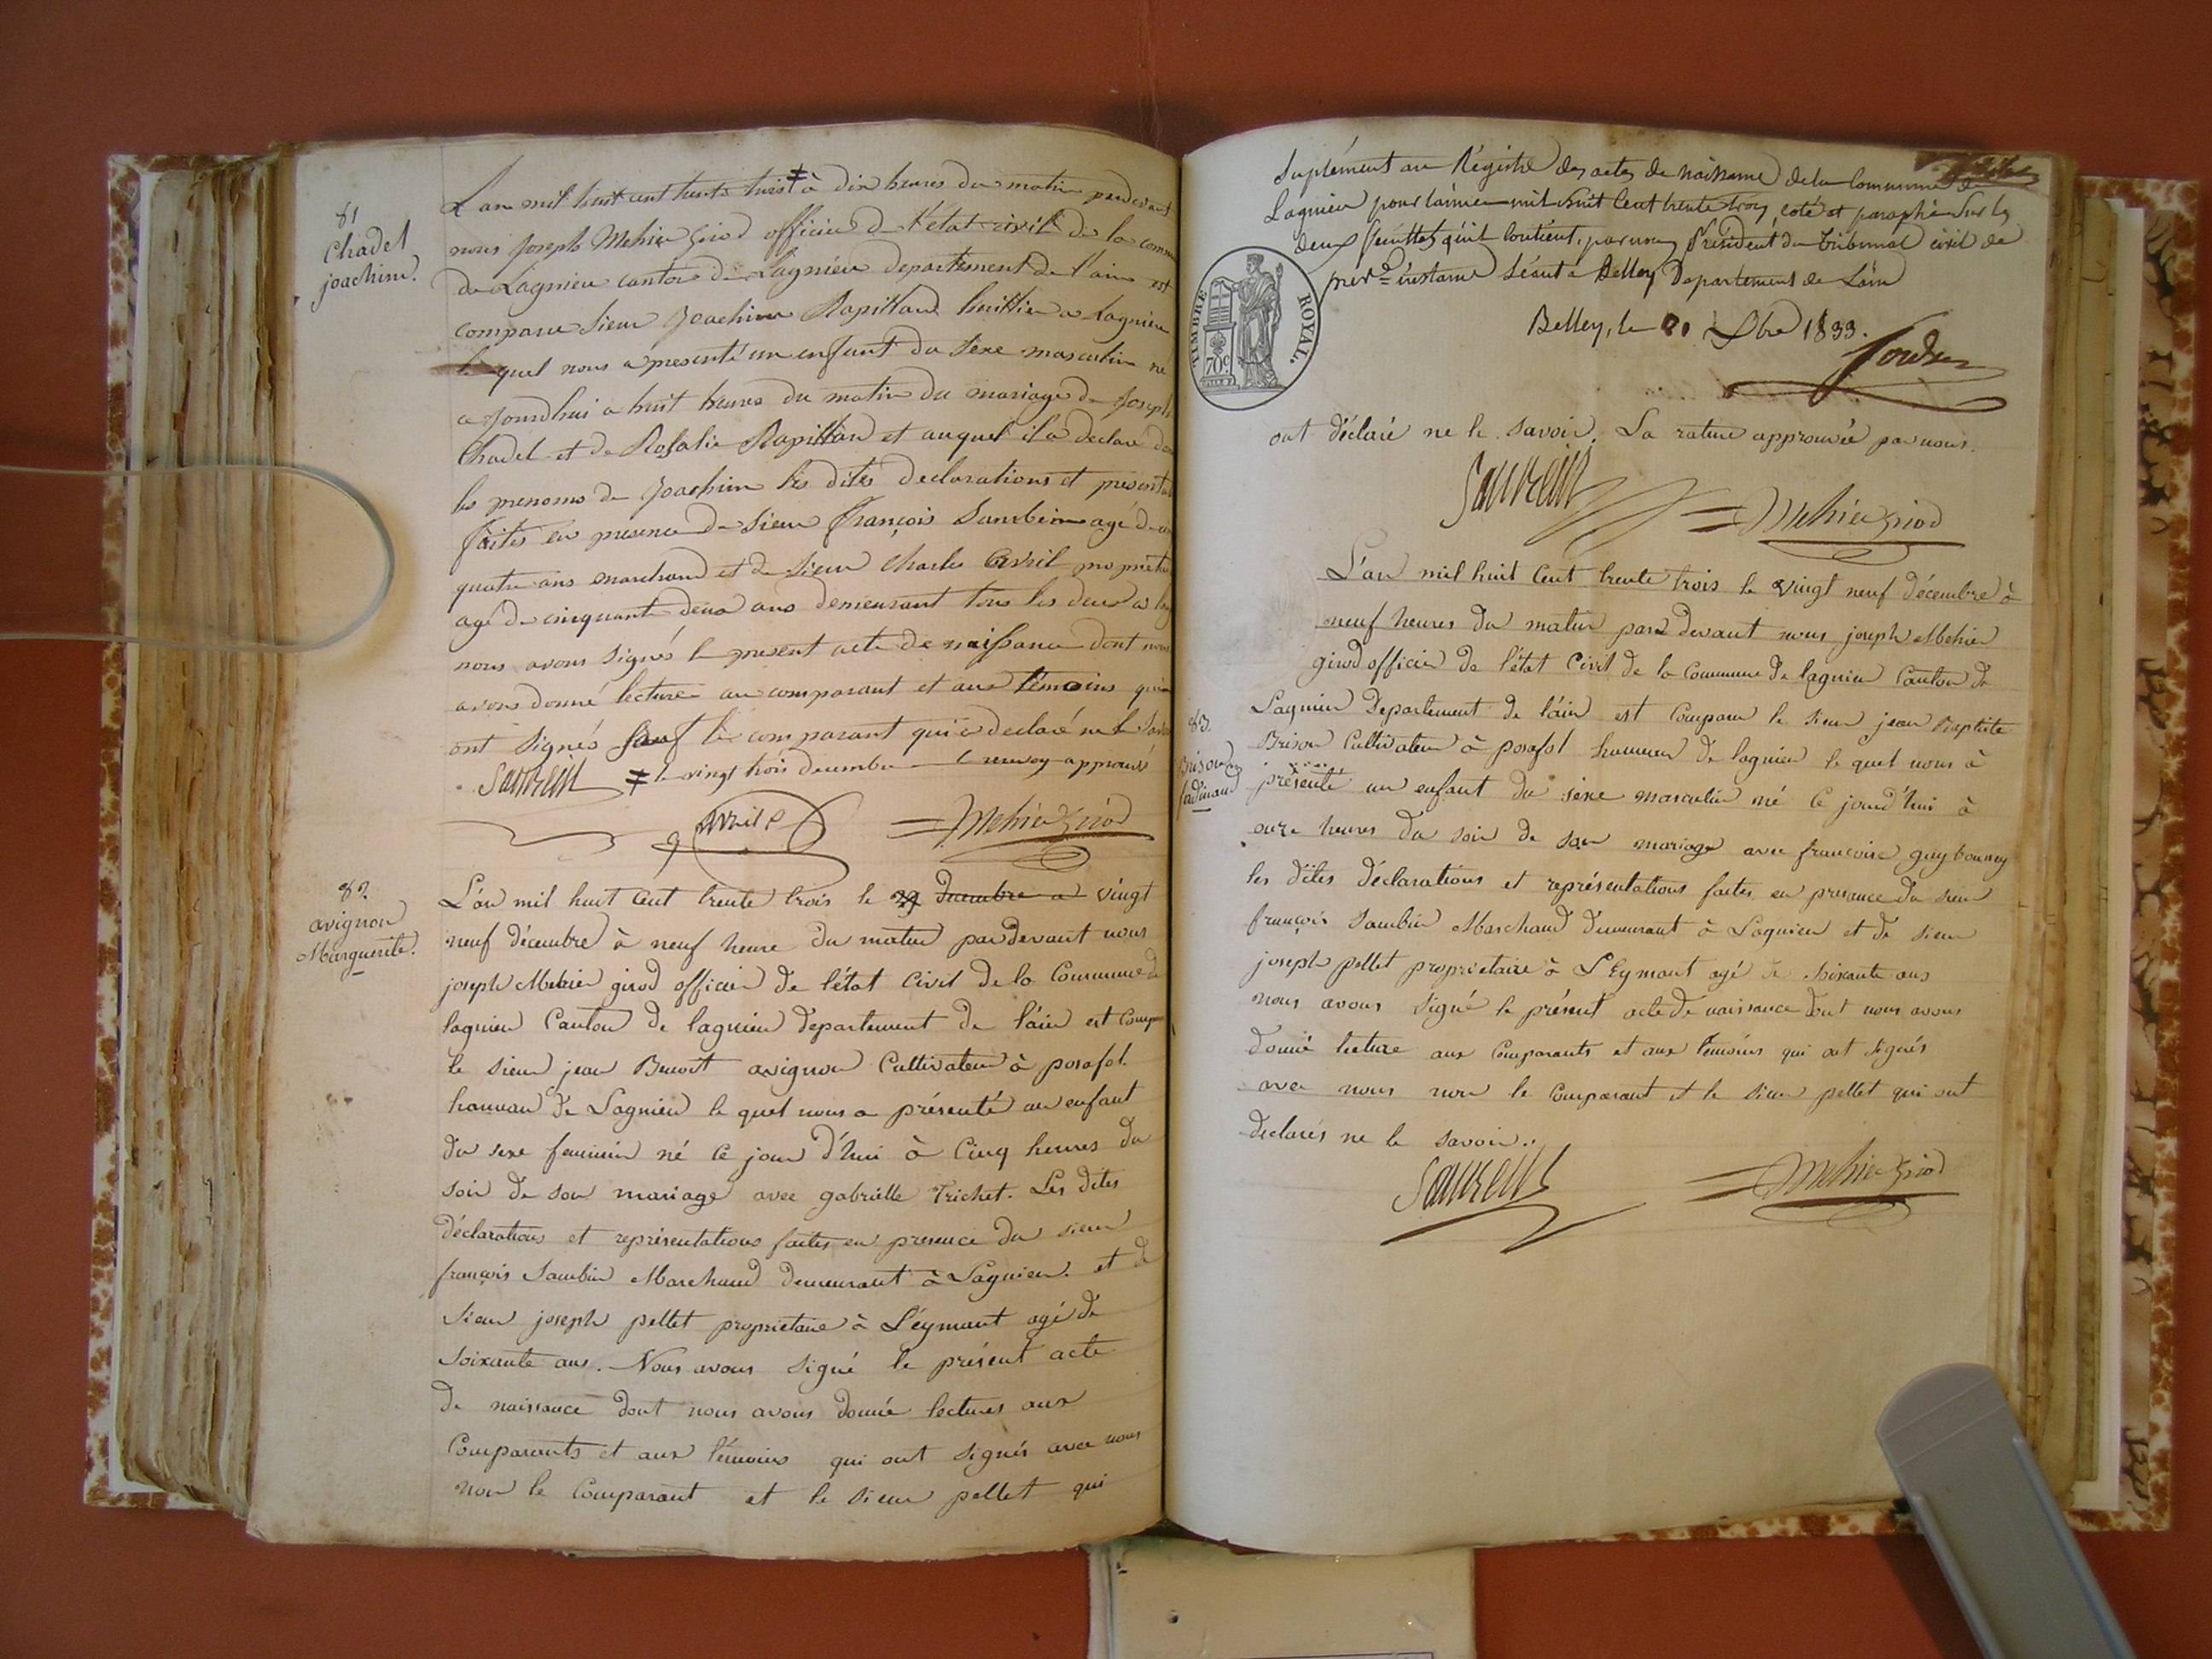 81
Chadel
joachim.
L'an mil huit cent trente trois ≠ à dix heures du matin pardevant
nous Joseph Mehier Girod officier de l'état civil de la comm
de Lagnieu canton de Lagnieu departement de l'ain est
comparu Sieur Joachim Rapillard huissier a Lagnieu
le quel nous a presenté un enfant du sexe masculin né
a jourdhui a huit heures du matin du mariage de Joseph
Chadel et de Rosalie Rapillard et auquel il a declaré
les prenoms de Joachim les dites declarations et present
faites en presence de Sieur François Saurbin agé de
quatre ans marchand et de Sieur Charles Avril propriet
agé de cinquant deux ans demeurant tous les deux a lag
nous avons signés le present acte de naissance dont nous
avons donné lecture au comparant et aux témoins qui
ont signés sauf le comparant qui a declaré ne le savoir
≠ le vingt trois decembre le renvoy approuvé
Avril P
Mehier Girod
82
avignon
Marguerite.
L'an mil huit cent trente trois le 29 decembre a vingt
neuf décembre à neuf heure du matin par devant nous
joseph Mehier girod officier de l'état civil de la Commune de
lagnieu Canton de lagnieu departement de l'ain est compa
le sieur jean Benoit avignon Cultivateur à posafol
hameau de Lagnieu le quel nous a présenté un enfant
du sexe feminin né ce jour d'hui à Cinq heures du
soir de son mariage avec gabrielle Trichet. Les dites
déclarations et représentations faites en presence du sieur
françois Saurbin Marchand demeurant à Lagnieu. et de
Sieur joseph pellet proprietaire à Leymant agé de
soixante ans. Nous avons signé le présent acte
de naissance dont nous avons donné lectures aux
Comparants et aux témoins qui ont signés avec nous
non le Comparant et le sieur pellet qui
Suplément au Régistre des actes de naissance de la Commune de
Lagnieu pour l'année mil huit Cent trente trois, coté et paraphé sur les
deux feuillets qu'il Contient, par nous Président du Tribunal civil de
instance séant à Belley Departement de L'ain
TIMBRE ROYAL.
70c
Belley, le Xbre 1833.
ont déclaré ne le savoir. La rature approuvée par nous.
Mehier Girod
83.
Brison
ferdinand
L'an mil huit Cent trente trois le vingt neuf décembre à
neuf heures du matin par devant nous joseph Mehier
girod officier de l'état Civil de la Commune de lagnieu Canton de
Lagnieu Departement de l'ain est Comparu le sieur jean Baptiste
Brison Cultivateur à posafol hameau de lagnieu le quel nous à
présenté un enfant du sexe masculin né ce jourd'hui à
onze heures du soir de son mariage avec françoise guy bonnay
les dites déclarations et représentations faites en presance du sieur
françois Saurbin Marchand demeurant à Lagnieu et de sieur
joseph pellet proprietaire à L'Eymant agé de soixante ans
nous avons signé le présent acte de naissance dont nous avons
donné lecture aux Comparants et aux témoins qui ont signés
avec nous non le Comparant et le sieur pellet qui ont
declarés ne le savoir.
Mehier Girod